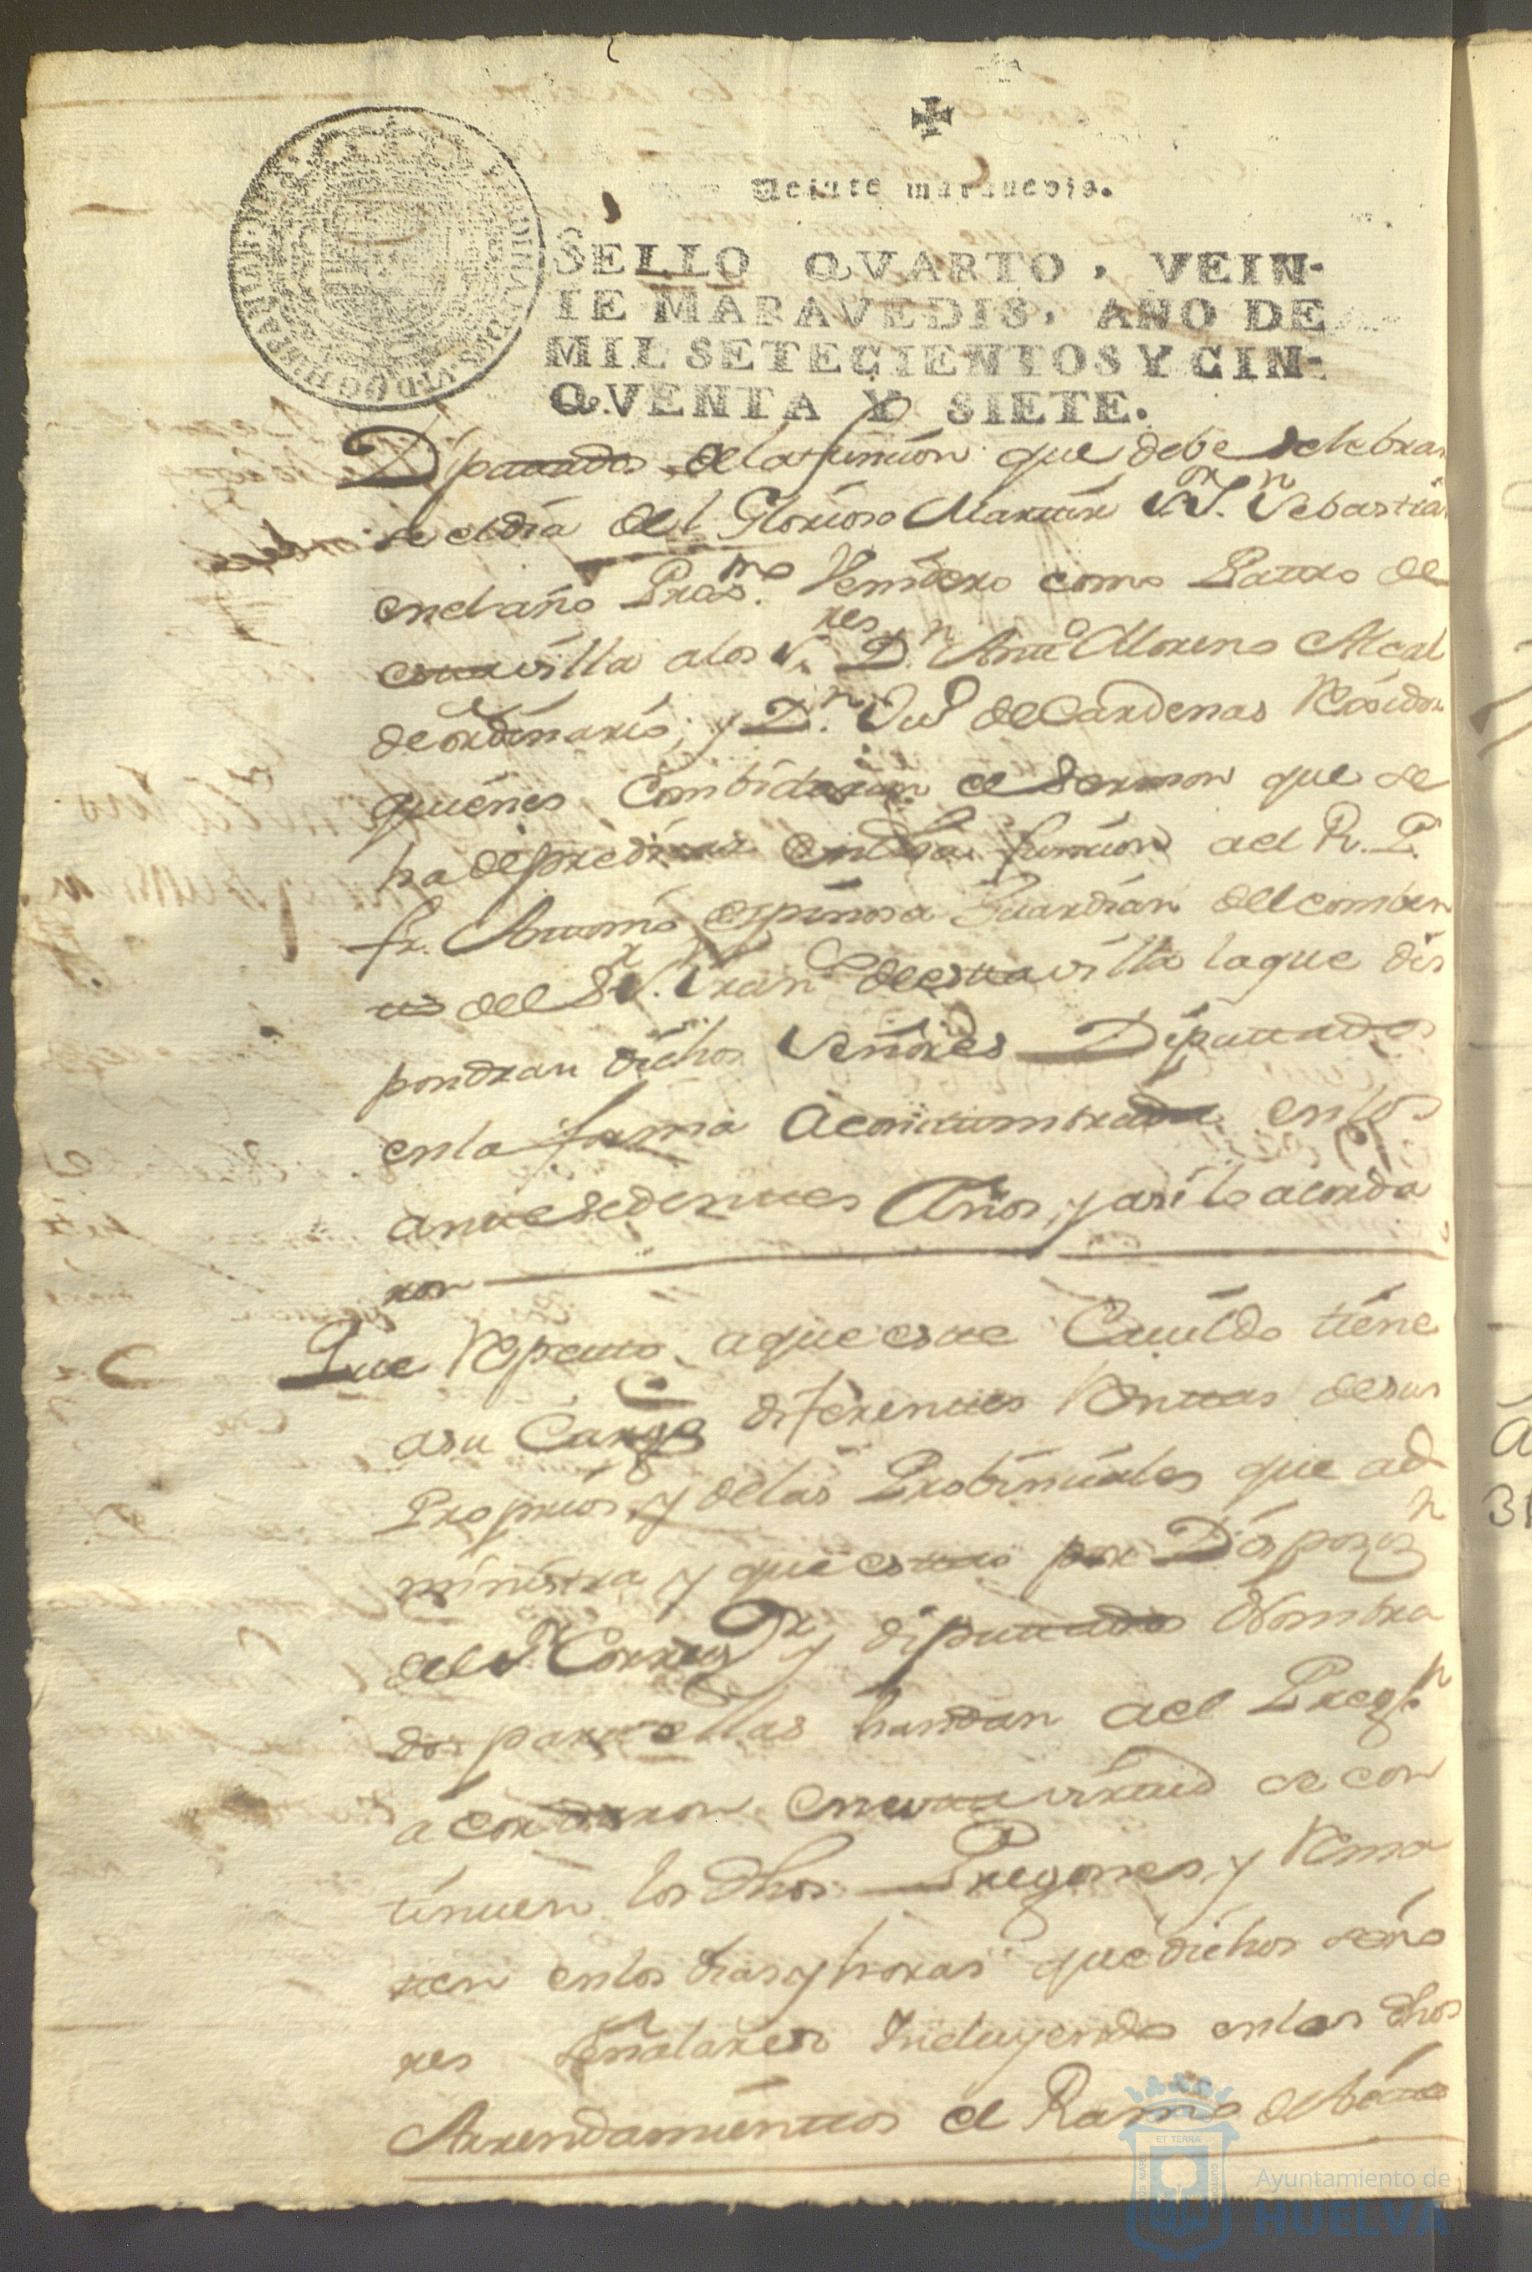 Veinte maravedis.
SELLO QVARTO, VEIN-
TE MARAVEDIS, AÑO DE
MIL SETECIENTOS Y CIN-
QVENTA Y SIETE.
Diputados de la funcion que debe selebrar
se el dia del Glorioso Martir Sr. Sn. Sebastian
en el año Proxmo. Venidero como Patro de
esta villa a los Sres. Dn. Anto Moreno Alcal
de ordinario, y Dn. de Cardenas Rexidor
quienes Conbidaran el Sermon que se
ha de predicar en dha funcion al R. P.
fr. Antonio espinosa Guardian del comben
to del Sr. Sn. Franco de esta villa la que dis
pondran dichos Señores Diputados
en la forma Acostumbrada en los
antesedentes Años, y asi lo acorda
ron
Que Respecto a que este Cavildo tiene
a su Cargo diferentes Rentas de sus
Propios, y de las Probinciales que ad
ministra y que estas por Disposon
del Sr. Corregor y diputados Nombra
dos para ellas handan al Pregon
acordaron en esta virtud se con
tinuen los dhos Pregones, y Rema
ten en los dias y horas que dichos seño
res señalaren Incluyendo en los dhos
Arrendamientos el Ramo de
ET TERRA
Ayuntamiento de
HUELVA